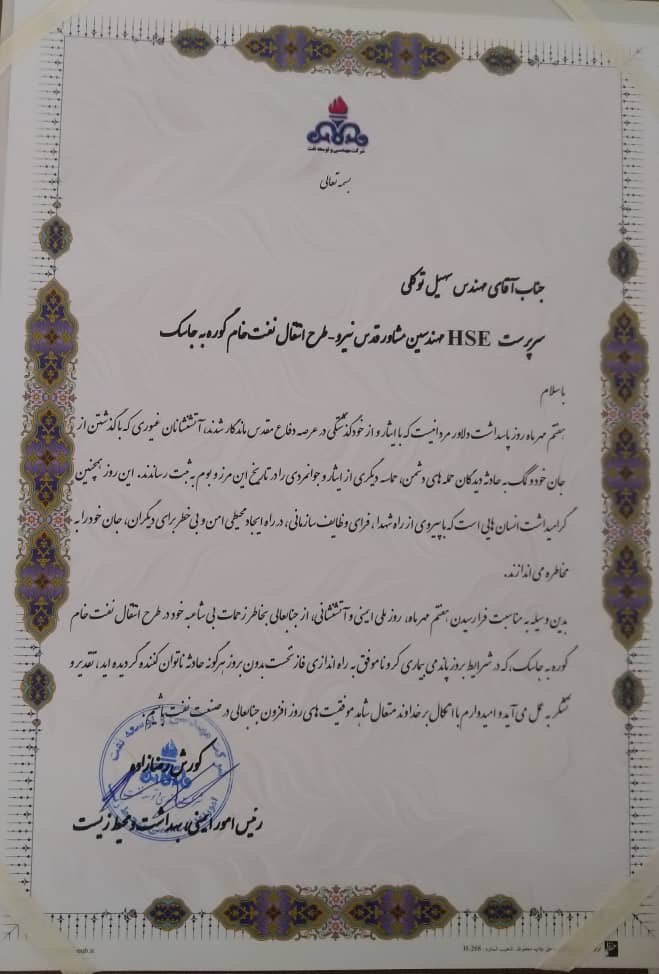 شرکت مهندسی و توسعه نفت
بسمه تعالی
جناب آقای مهندس سهیل توکلی
سرپرست HSE مهندسین مشاور قدس نیرو - طرح انتقال نفت خام گوره به جاسک
باسلام
هفتم مهرماه روز پاسداشت دلاور مردانیست که با ایثار و از خودگذشتگی در عرصه دفاع مقدس ماندگار شدند، آتشنشانان غیوری که با گذشتن از
جان خود و کمک به حادثه دیدگان حمله های دشمن، حماسه دیگری از ایثار و جوانمردی را در تاریخ این مرز و بوم به ثبت رساندند. این روز همچنین
گرامیداشت انسان هایی است که با پیروی از راه شهدا، فرای وظایف سازمانی، در راه ایجاد محیطی امن و بی خطر برای دیگران، جان خود را به
مخاطره می اندازند.
بدین وسیله به مناسبت فرارسیدن هفتم مهرماه، روز ملی ایمنی و آتشنشانی، از جنابعالی بخاطر زحمات بی شائبه خود در طرح انتقال نفت خام
گوره به جاسک، که در شرایط بروز پاندمی بیماری کرونا موفق به راه اندازی فاز نخست بدون بروز هرگونه حادثه ناتوان کننده گردیده اید، تقدیر و
تشکر به عمل می آید و امیدوارم با اتکال بر خداوند متعال شاهد موفقیت های روز افزون جنابعالی در صنعت نفت باشیم.
کورش رضازاده
رئیس امور ایمنی، بهداشت و محیط زیست
H-268